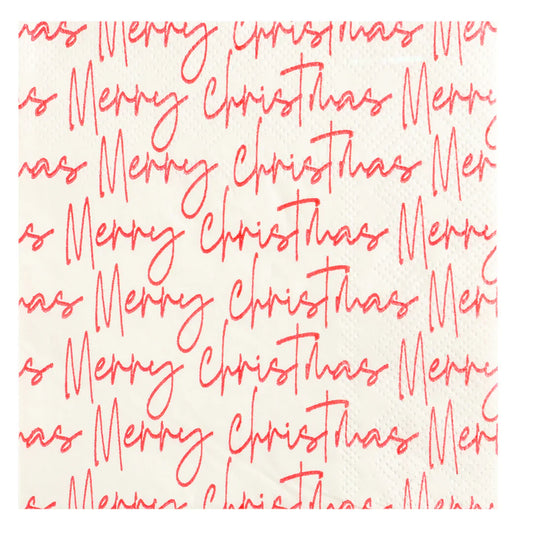 mas Merry Christmas
as Merry Christmas Mer
nas Merry Christmas Mer
s Merry Christmas Merry
as Merry Christmas Mer
s Merry Christmas Merry
as Merry Christmas Mer
as Merry Christmas Me